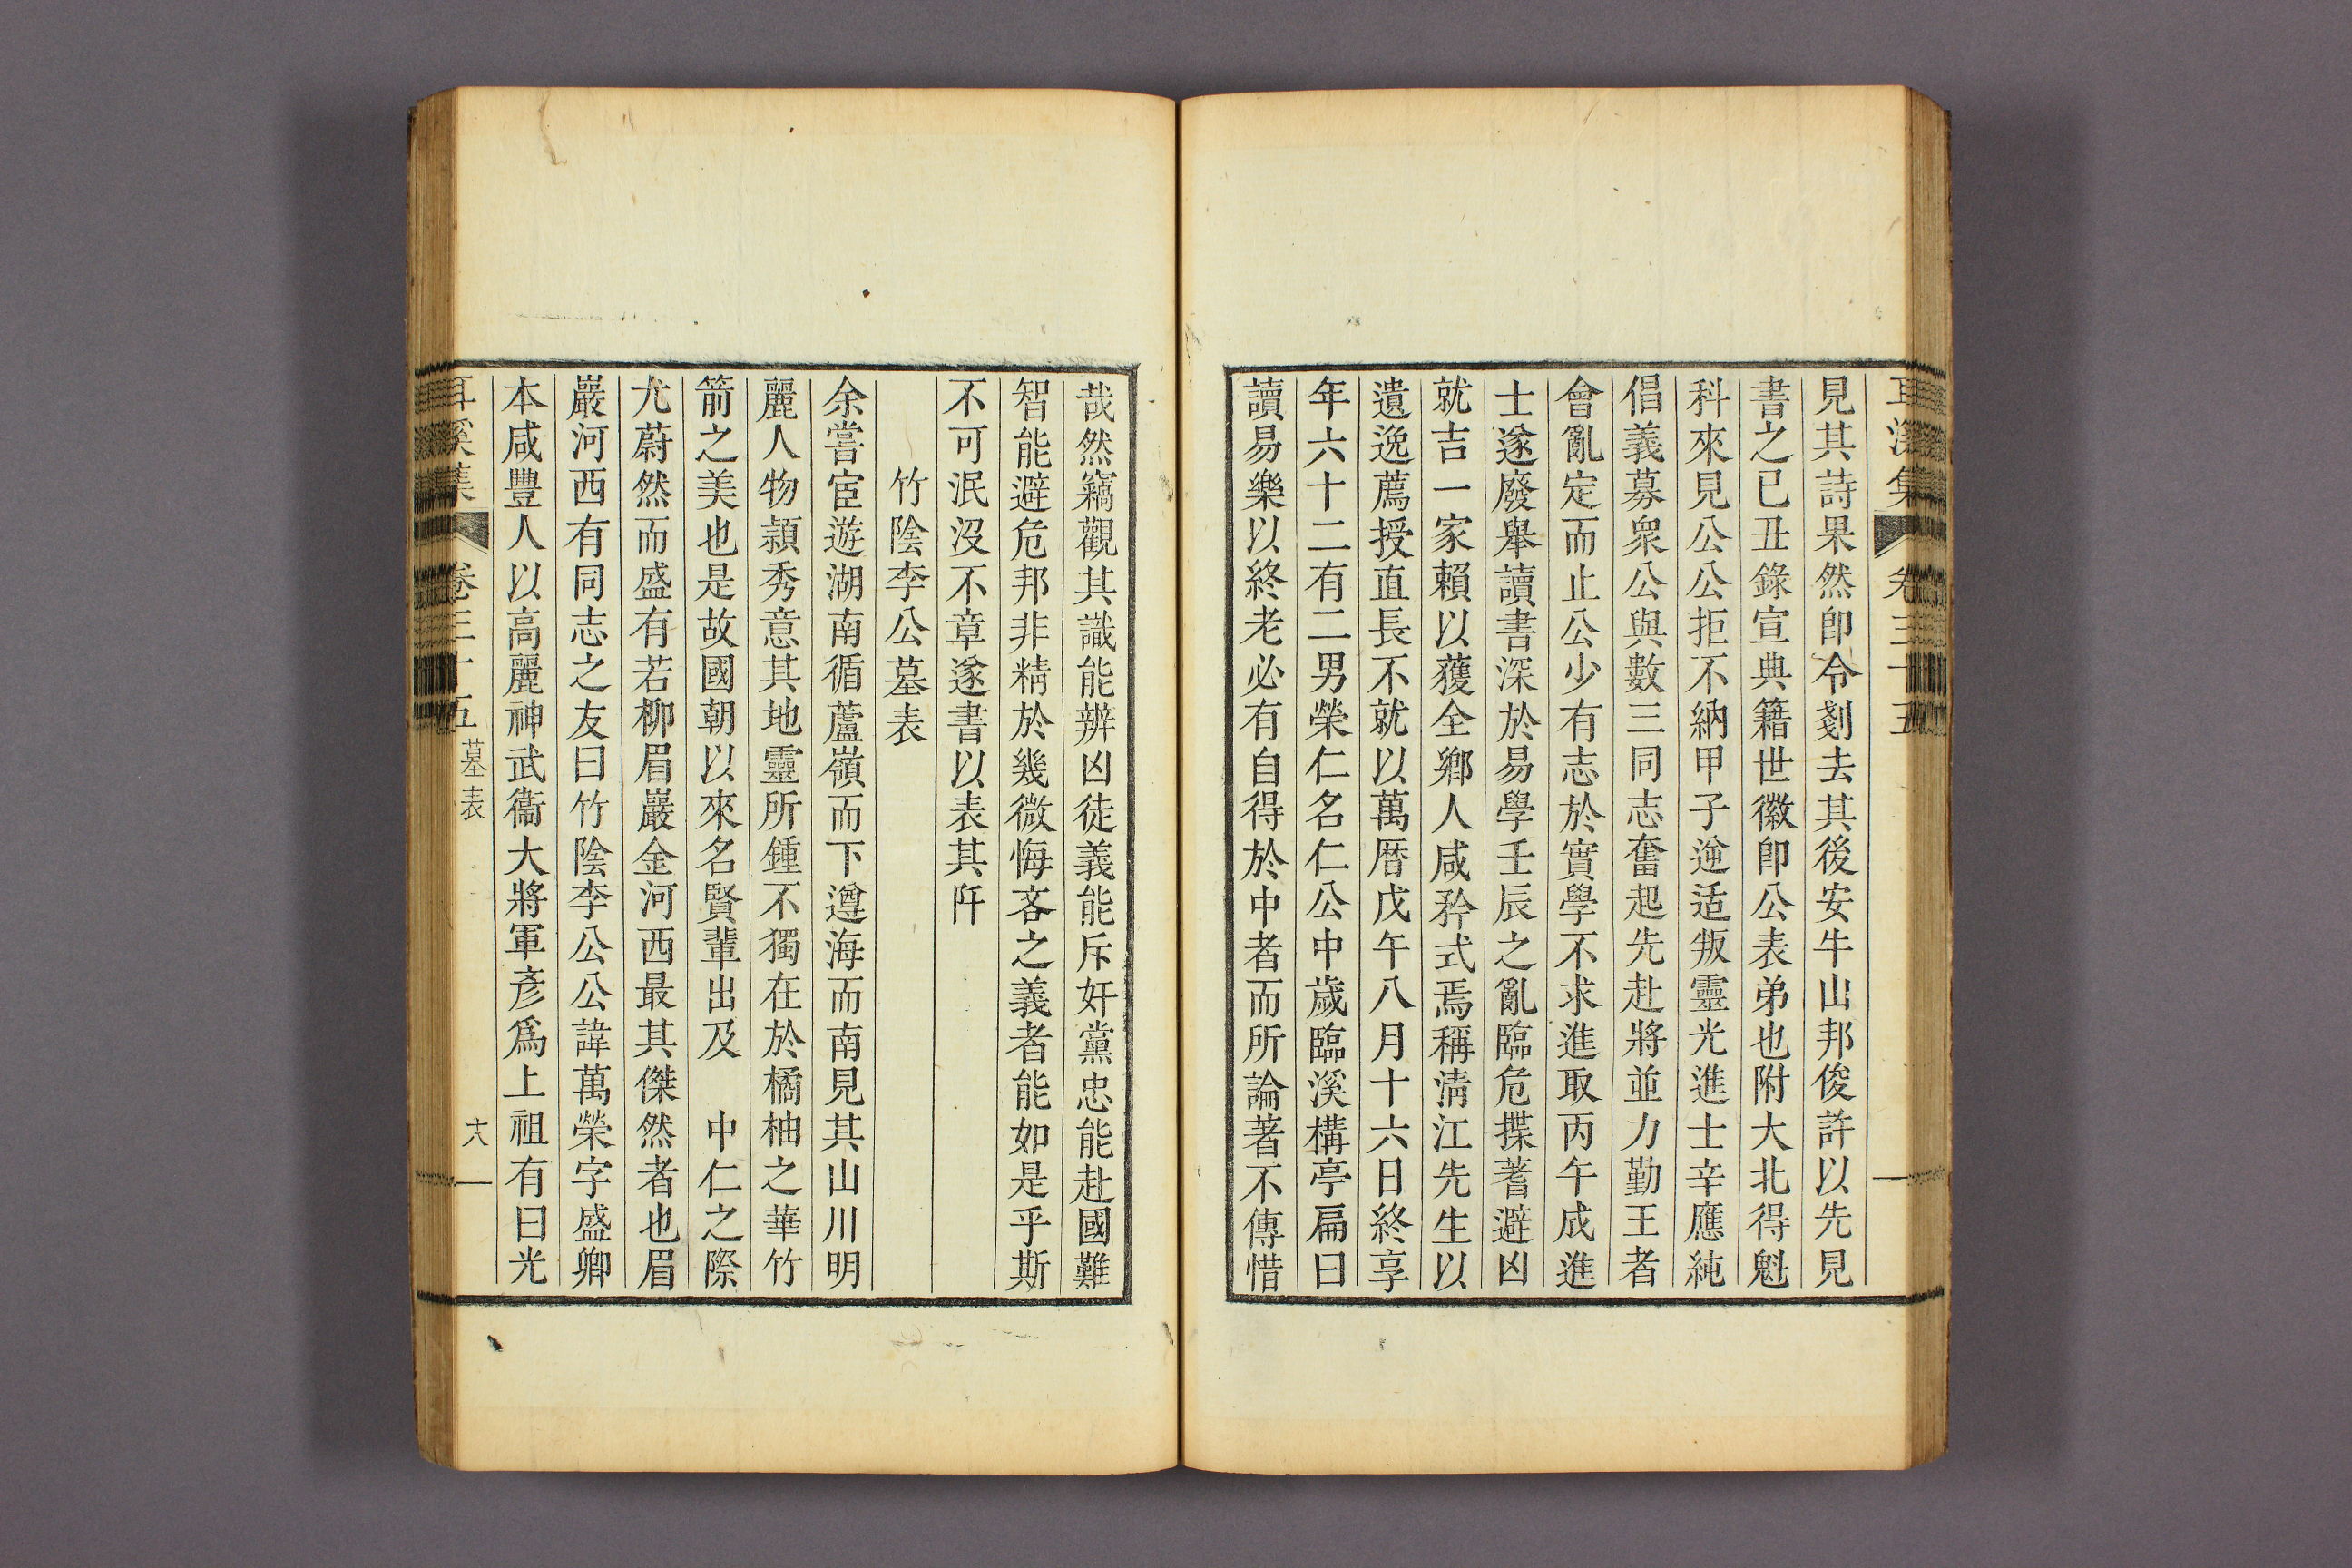 耳溪集 卷三十五
見其詩果然卽令剗去其後安牛山邦俊許以先見
書之已丑錄宣典籍世徽卽公表弟也附大北得魁
科來見公公拒不納甲子逆适叛靈光進士辛應純
倡義募衆公與數三同志奮起先赴將並力勤王者
會亂定而止公少有志於實學不求進取丙午成進
士遂廢舉讀書深於易學壬辰之亂臨危揲蓍避凶
就吉一家賴以獲全鄉人咸矜式焉稱淸江先生以
遺逸薦授直長不就以萬曆戊午八月十六日終享
年六十二有二男榮仁名仁公中歲臨溪構亭扁曰
讀易樂以終老必有自得於中者而所論著不傳惜
哉然竊觀其識能辨凶徒義能斥奸黨忠能赴國難
智能避危邦非精於幾微悔吝之義者能如是乎斯
不可泯沒不章遂書以表其阡
竹陰李公墓表
余嘗宦遊湖南循蘆嶺而下遵海而南見其山川明
麗人物潁秀意其地靈所鍾不獨在於橘柚之華竹
箭之美也是故國朝以來名賢輩出及 中仁之際
尤蔚然而盛有若柳眉巖金河西最其傑然者也眉
巖河西有同志之友曰竹陰李公公諱萬榮字盛卿
本咸豐人以高麗神武衞大將軍彥爲上祖有曰光
耳溪集 卷三十五 墓表 十八